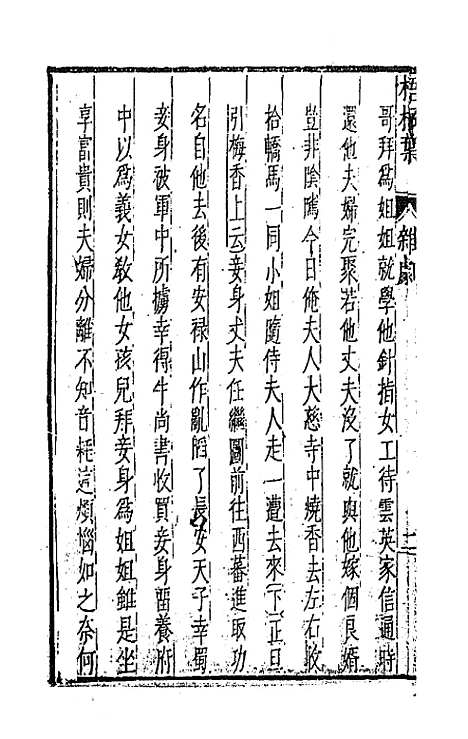 梧桐葉 雜劇 二
哥拜爲姐姐就學他針指女工待雲英家信通時
還他夫婦完聚若他丈夫没了就與他嫁個良婿
豈非陰隲今日俺夫人大慈寺中燒香去左右收
拾轎馬一同小姐隨侍夫人走一遭去來下正旦
引梅香上云妾身丈夫任繼圖前往西蕃進取功
名自他去後有安禄山作亂䧟了長安天子幸蜀
妾身被軍中所擄幸得牛尚書收買妾身畱養府
中以爲義女敎他女孩兒拜妾身爲姐姐雖是坐
享富貴則夫婦分離不知音耗這煩惱如之奈何